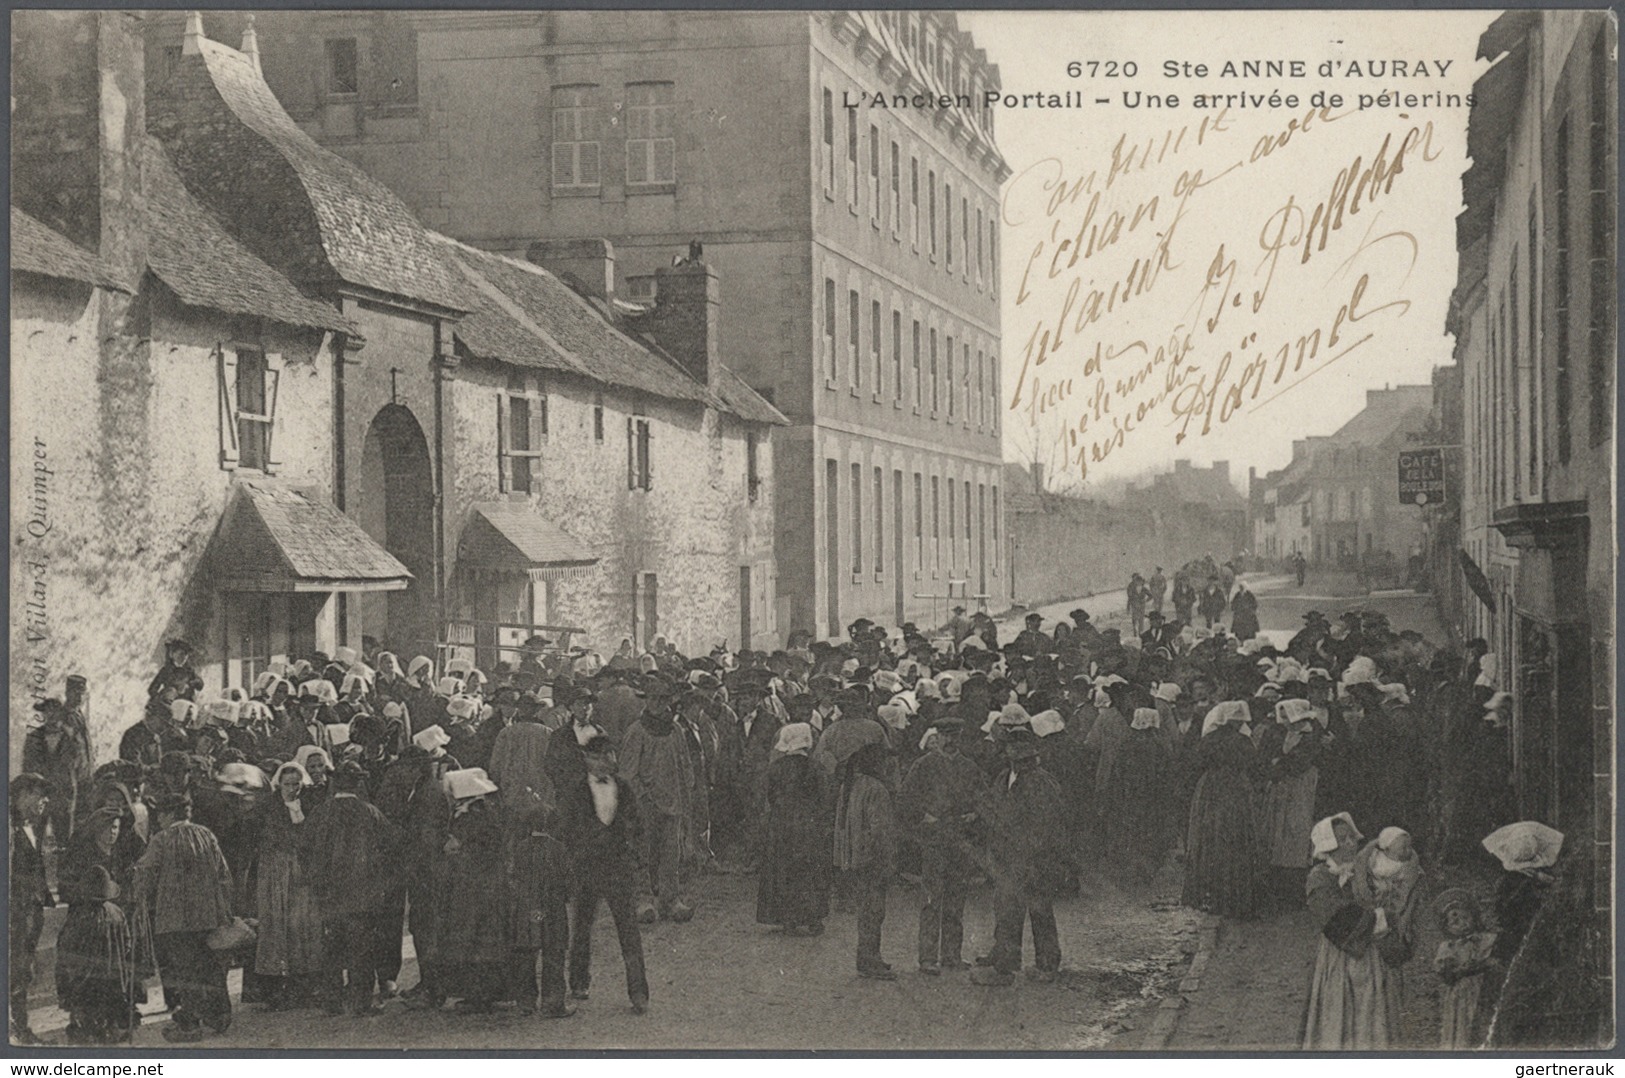 6720 Ste ANNE d'AURAY
L'Ancien Portail - Une arrivée de pélerins
l'échange avec
plaisir
lieu de
pélerinage
CAFÉ
DE LA
BOULE D'OR
Collection Villard, Quimper
www.delcampe.net
gaertnerauk